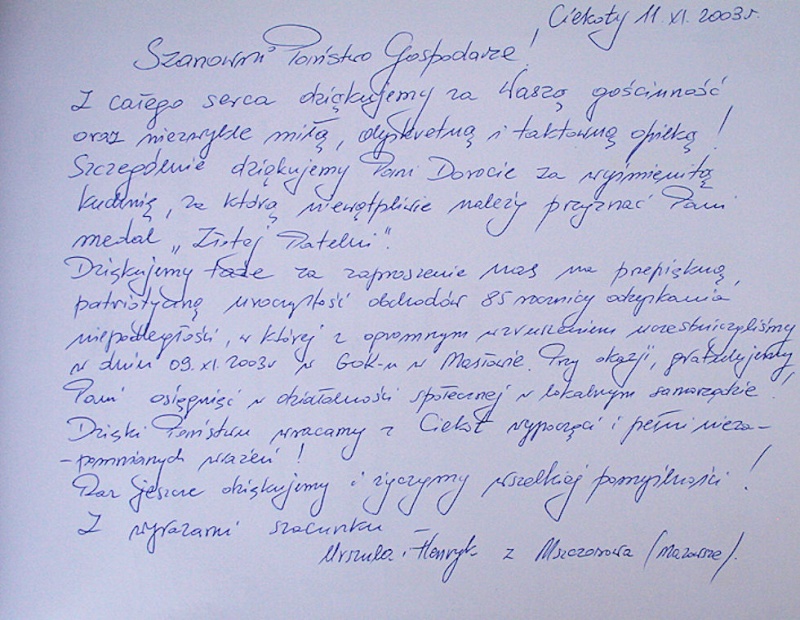 Ciekoty 11.XI.2003r.
Szanowni Państwo Gospodarze!
Z całego serca dziękujemy za Waszą gościnność
oraz niezwykle miłą, dyskretną i taktowną opiekę!
Szczególnie dziękujemy Pani Dorocie za wyśmienitą
kuchnię, za którą niewątpliwie należy przyznać Pani
medal „Złotej Patelni”.
Dziękujemy także za zaproszenie nas na przepiękną,
patriotyczną uroczystość obchodów 85 rocznicy odzyskania
niepodległości, w której z ogromnym wzruszeniem uczestniczyliśmy
w dniu 09.XI.2003r w GOK-u w Masłowie. Przy okazji, gratulujemy
Pani osiągnięć w działalności społecznej w lokalnym samorządzie!
Dzięki Państwu wracamy z Ciekot wypoczęci i pełni nieza-
-pomnianych wrażeń!
Raz jeszcze dziękujemy i życzymy wszelkiej pomyślności!
Z wyrazami szacunku
Urszula i Henryk z Mszczonowa (Mazowsze).